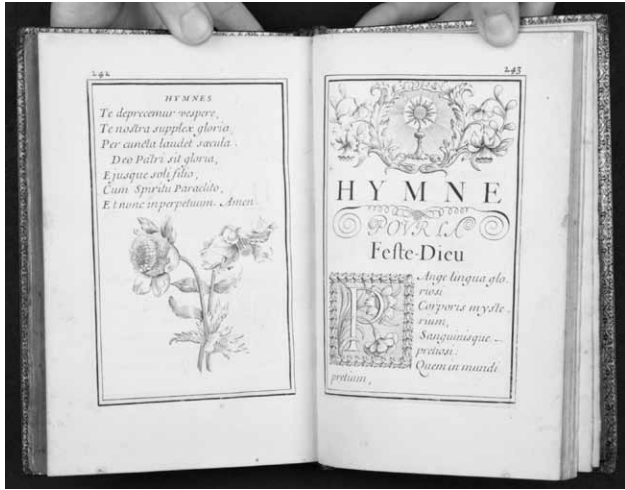 242
HYMNES
Te deprecemur vespere,
Te nostra supplex gloria,
Per cuncta laudet sæcula.
Deo Patri sit gloria,
Ejusque soli filio,
Cum Spiritu Paraclito,
Et nunc in perpetuum. Amen.
243
HYMNE
POUR LA
Feste-Dieu
PAnge lingua glo-
riosi
Corporis myste-
rium,
Sanguinisque
pretiosi:
Quem in mundi
pretium,